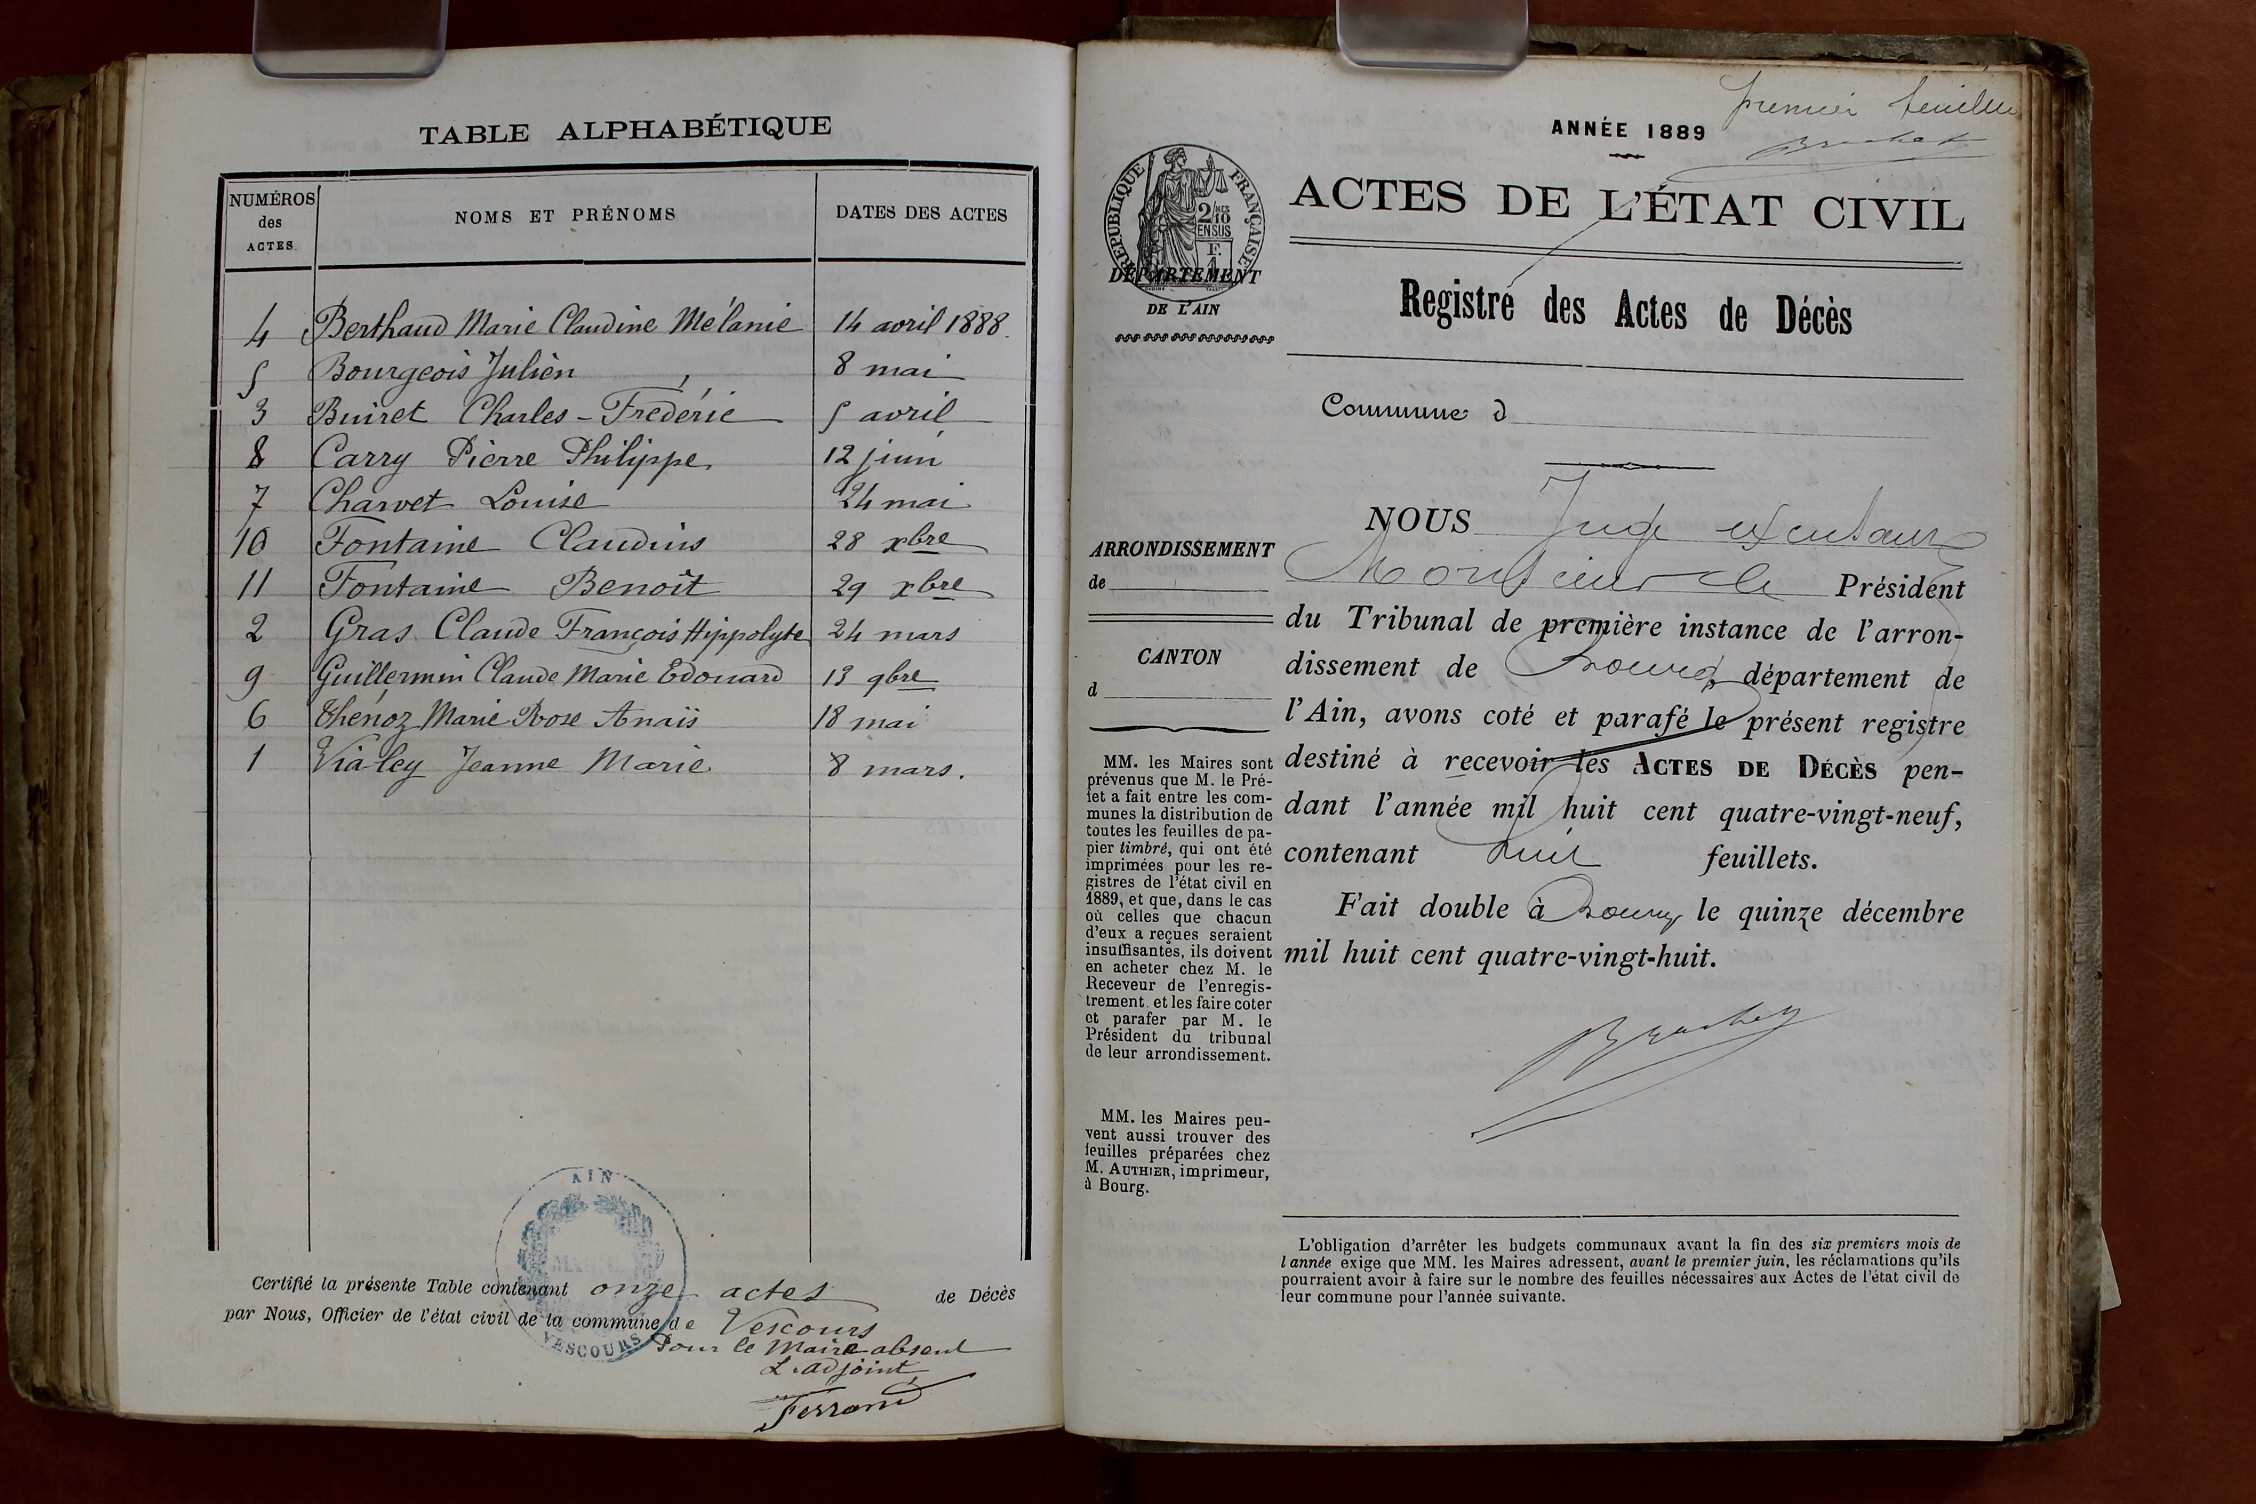 TABLE ALPHABÉTIQUE
NUMÉROS des ACTES.
NOMS ET PRÉNOMS
DATES DES ACTES
4 Berthaud Marie Claudine Mélanie 14 avril 1888.
5 Bourgeois Julien 8 mai
3 Buiret Charles-Frédéric 5 avril
8 Carry Pierre Philippe 12 juin
7 Charvet Louise 24 mai
10 Fontaine Claudius 28 xbre
11 Fontaine Benoît 29 xbre
2 Gras Claude François Hippolyte 24 mars
9 Guillermin Claude Marie Edouard 13 9bre
6 Thénoz Marie Rose Anaïs 18 mai
1 Vialey Jeanne Marie 8 mars.
AIN
MAIRIE
VESCOURS
Certifié la présente Table contenant onze actes de Décès
par Nous, Officier de l'état civil de la commune de Vescours
Pour le Maire absent
L'adjoint
Ferrand
premier feuillet
ANNÉE 1889
RÉPUBLIQUE FRANÇAISE
2/10 EN SUS
ACTES DE L'ÉTAT CIVIL
DÉPARTEMENT
DE L'AIN
Registre des Actes de Décès
Commune d
ARRONDISSEMENT
de
CANTON
d
MM. les Maires sont
prévenus que M. le Pré-
fet a fait entre les com-
munes la distribution de
toutes les feuilles de pa-
pier timbré, qui ont été
imprimées pour les re-
gistres de l'état civil en
1889, et que, dans le cas
où celles que chacun
d'eux a reçues seraient
insuffisantes, ils doivent
en acheter chez M. le
Receveur de l'enregis-
trement et les faire coter
et parafer par M. le
Président du tribunal
de leur arrondissement.
MM. les Maires peu-
vent aussi trouver des
feuilles préparées chez
M. AUTHIER, imprimeur,
à Bourg.
NOUS Juge
Monsieur le Président
du Tribunal de première instance de l'arron-
dissement de Bourg département de
l'Ain, avons coté et parafé le présent registre
destiné à recevoir les ACTES DE DÉCÈS pen-
dant l'année mil huit cent quatre-vingt-neuf,
contenant huit feuillets.
Fait double à Bourg le quinze décembre
mil huit cent quatre-vingt-huit.
L'obligation d'arrêter les budgets communaux avant la fin des six premiers mois de
l'année exige que MM. les Maires adressent, avant le premier juin, les réclamations qu'ils
pourraient avoir à faire sur le nombre des feuilles nécessaires aux Actes de l'état civil de
leur commune pour l'année suivante.